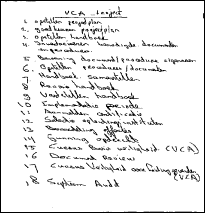 VCA traject
1. opstellen projectplan
2. goedkeuren projectplan
3. opstellen handboek
4. Inventariseren huidige documenten
en procedures
5. document/procedure
6. opstellen procedures/documenten
7. Handboek samenstellen
8. Review handboek
9. Vaststellen handboek
10 Implementatie periode
11 Aanmelden certificatie
12 Selectie opleidingsinstituten
13 Beoordeling offertes
14 Gunning opdracht
15 Cursus Basis veiligheid (VCA)
16 Document Review
17 Cursus Veiligheid voor leidinggevenden
(VCA)
18 Systeem Audit